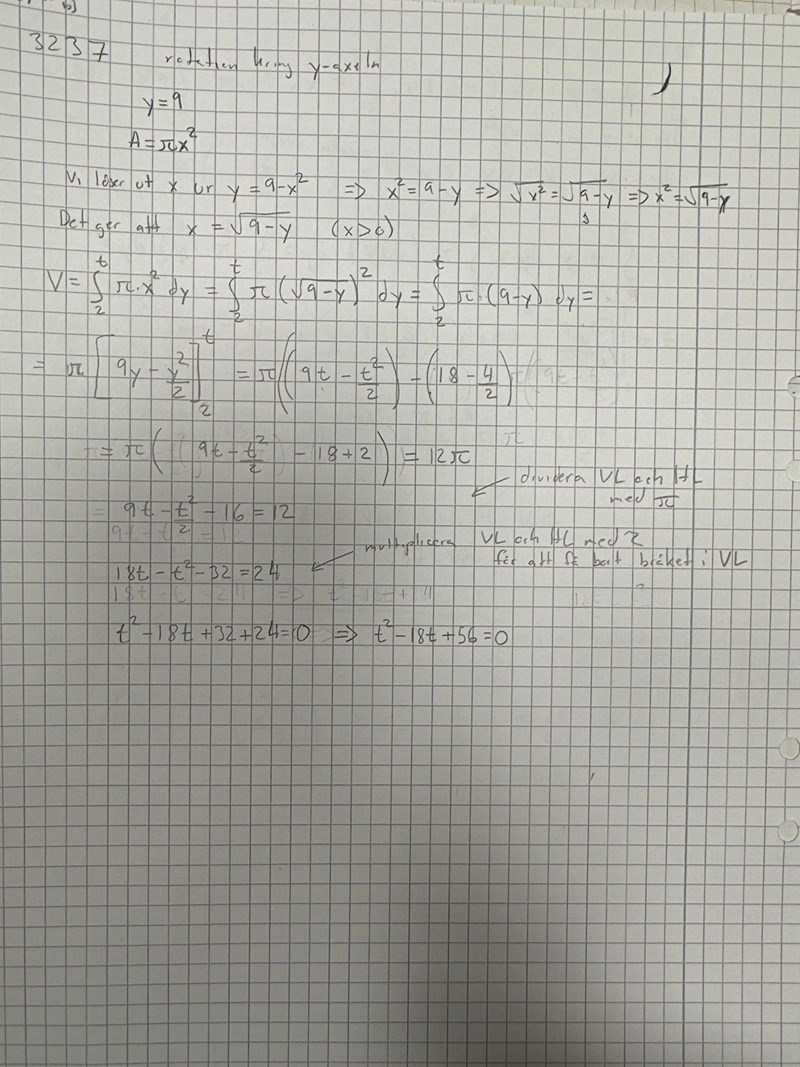 b)
3237 rotation kring y-axeln
y=9
A=πx²
Vi löser ut x ur y=9-x² => x²=9-y => √x²=√9-y => x²=√9-y
Det ger att x=√9-y (x>0)
V=∫₂ᵗ π·x² dy = ∫₂ᵗ π(√9-y)² dy = ∫₂ᵗ π·(9-y) dy =
= π[9y-y²/2]₂ᵗ = π((9t-t²/2)-(18-4/2)
= π(9t-t²/2-18+2) = 12π
dividera VL och HL
med π
9t-t²/2-16=12
multiplicera VL och HL med 2
för att få bort bråket i VL
18t-t²-32=24
t²-18t+32+24=0 => t²-18t+56=0